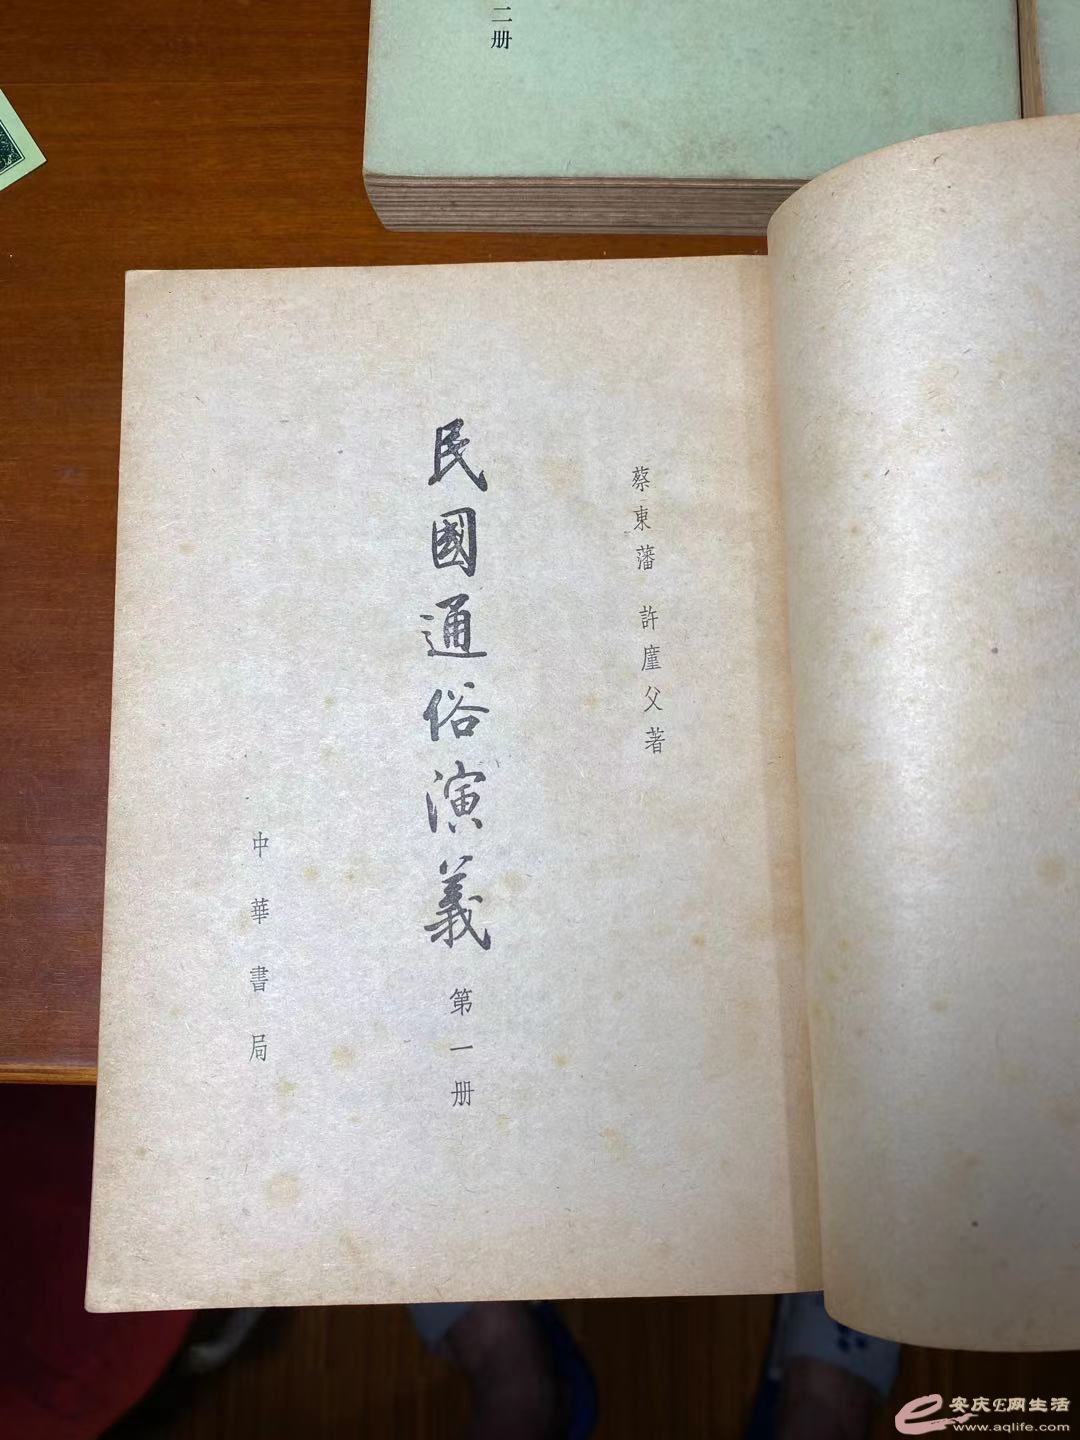 二册
蔡東藩 許廑父著
民國通俗演義 第一册
中華書局
安庆E网生活
www.aqlife.com